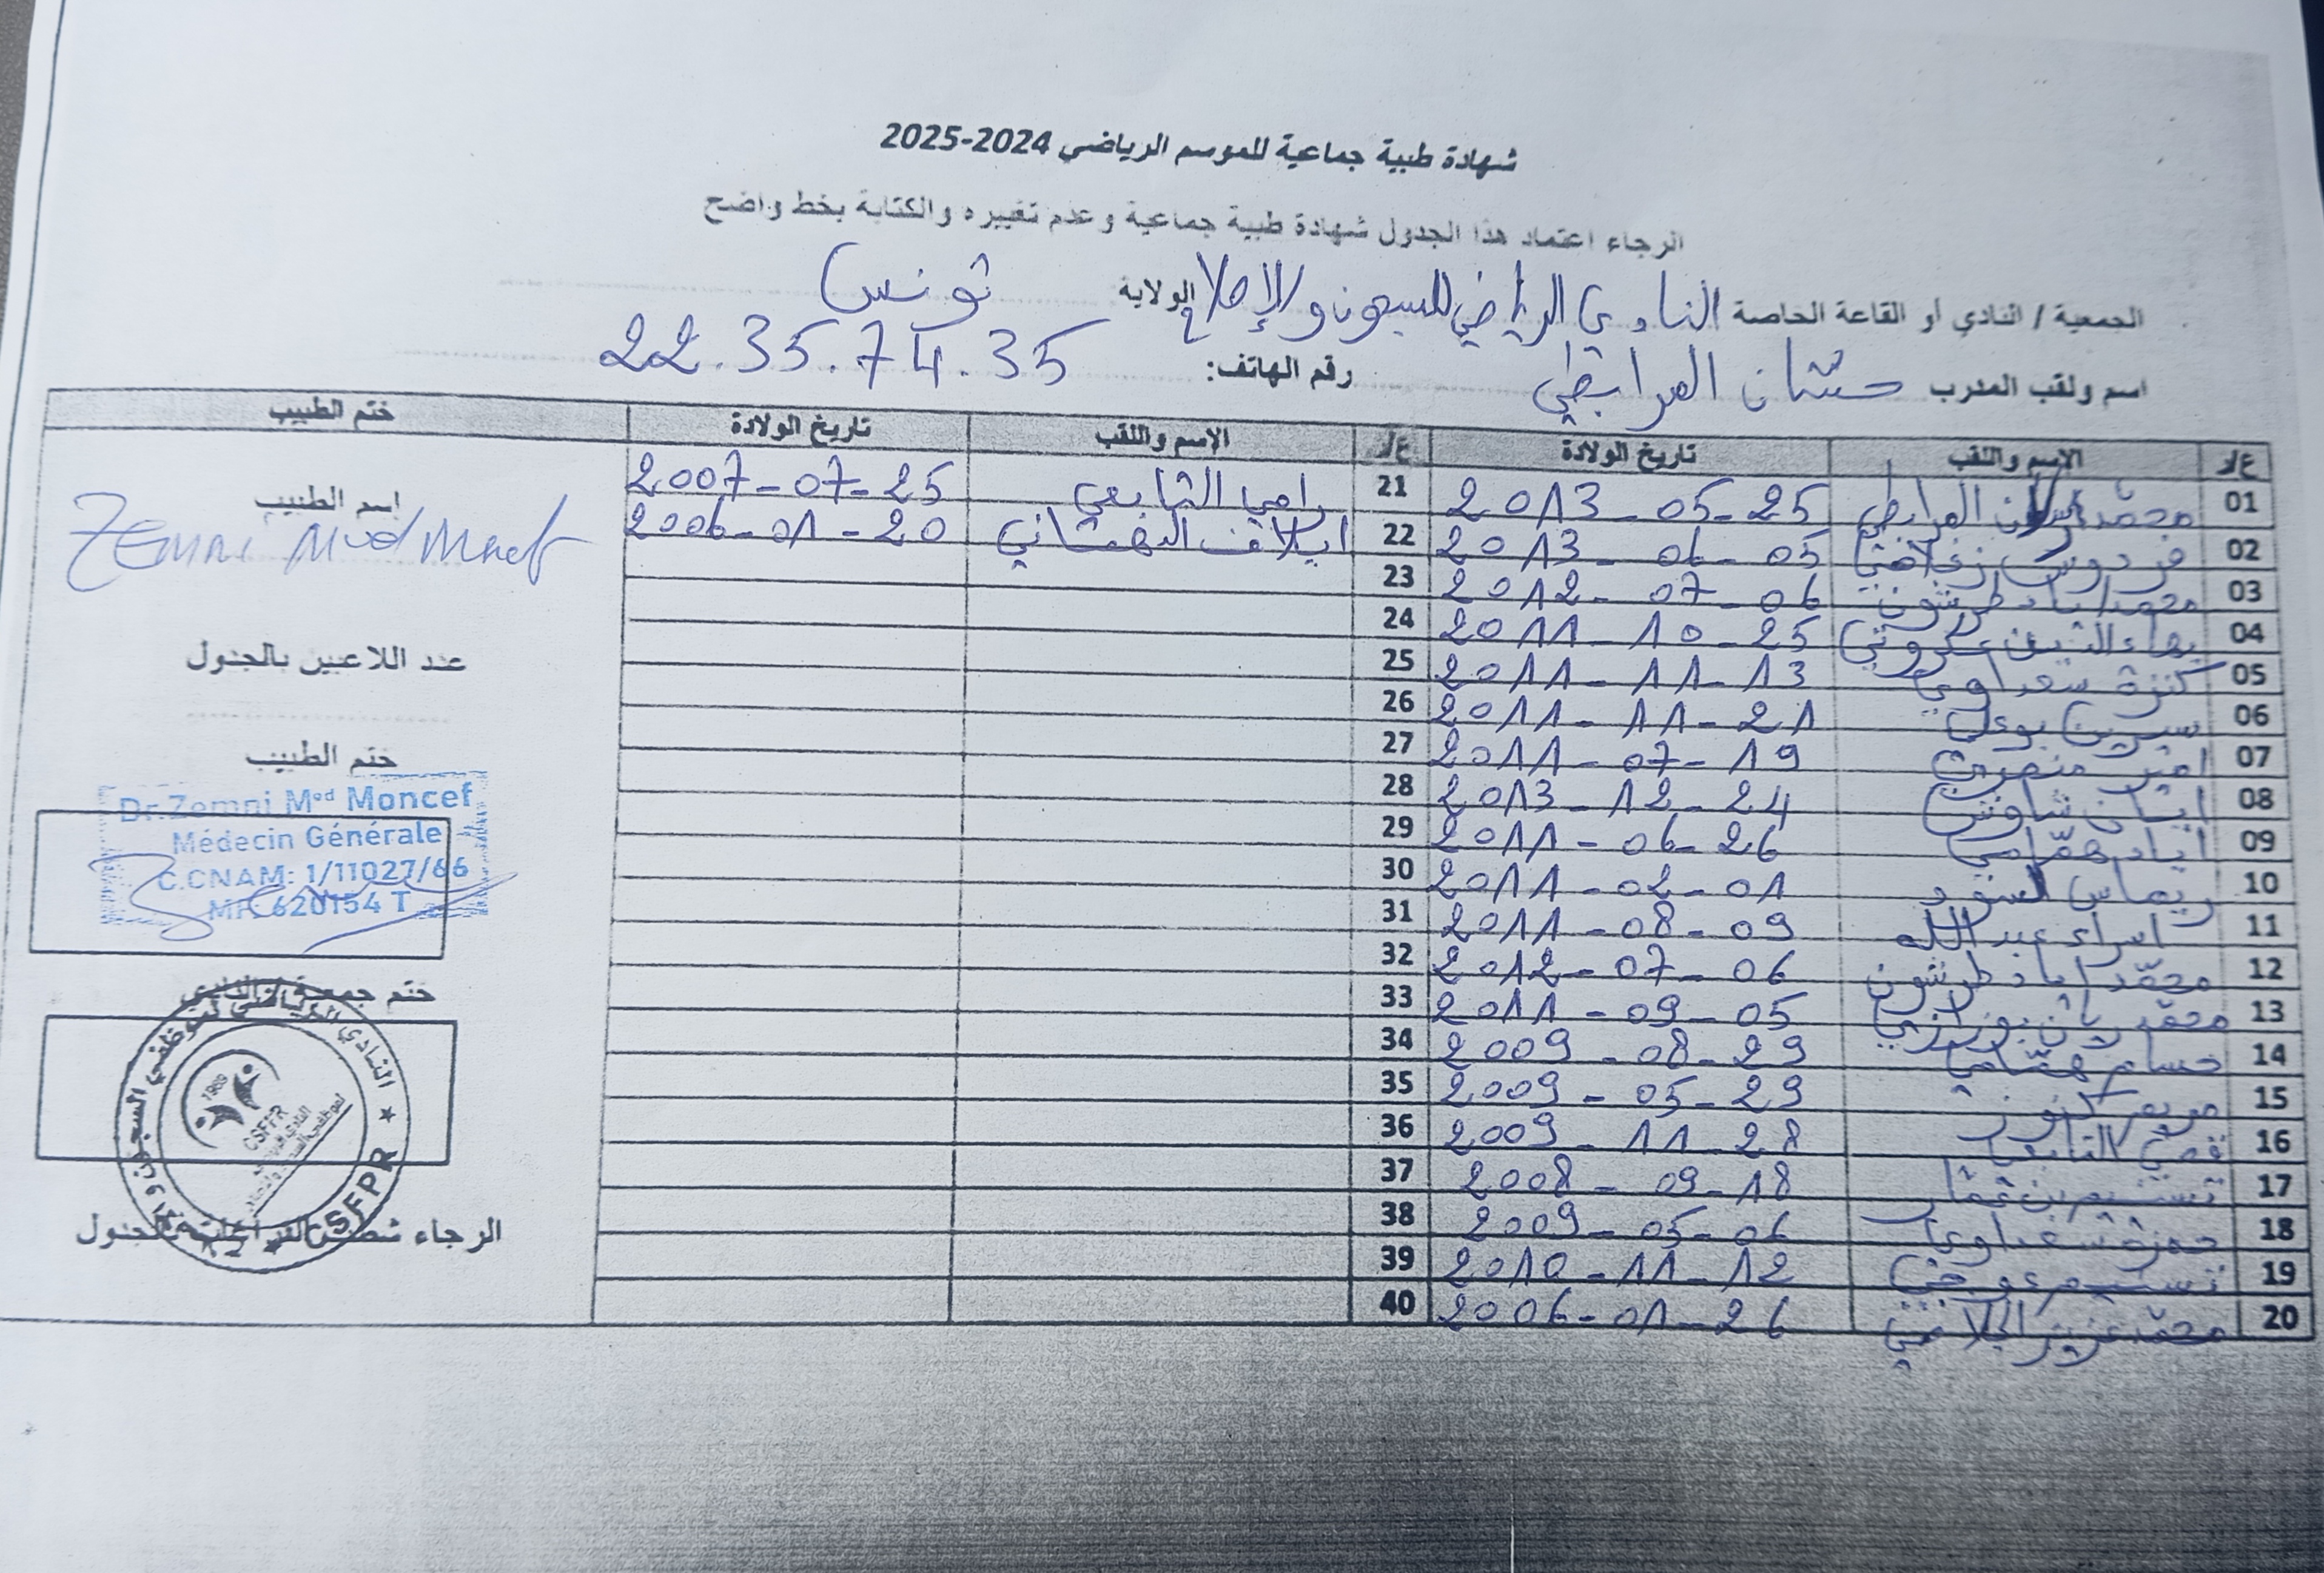 شهادة طبية جماعية للموسم الرياضي 2024-2025
الرجاء اعتماد هذا الجدول شهادة طبية جماعية وعدم تغييره والكتابة بخط واضح
الجمعية / النادي أو القاعة الخاصة النادي الرياضي للسجون والإصلاح الولاية تونس
اسم ولقب المدرب حسّان المرابطي رقم الهاتف: 22.35.74.35
ع/ر الاسم واللقب تاريخ الولادة ع/ر الاسم واللقب تاريخ الولادة ختم الطبيب
01 محمّد المرابطي 2013-05-25
02 فردوس 2013-06-05
03 محمد اياد طرشون 2012-07-06
04 بهاء الدين عكروتي 2011-10-25
05 كنزة سعداوي 2011-11-13
06 سيرين 2011-11-21
07 2011-07-19
08 شاوش 2013-12-24
09 اياد همّامي 2011-06-26
10 ريماس 2011-02-01
11 اسراء عبد الله 2011-08-09
12 محمّد اياد طرشون 2012-07-06
13 محمّد ريان بوزازي 2011-09-05
14 حسام همّامي 2009-08-29
15 مريم كنوز 2009-05-29
16 قصيّ التابعي 2009-11-28
17 تسنيم بن عمّار 2008-09-18
18 حمزة سعداوي 2009-05-06
19 تسنيم عوجي 2010-11-12
20 محمّد عزيز الجلاصي 2006-01-26
21 رامي التابعي 2007-07-25
22 ايلاف البهتاني 2006-01-20
23
24
25
26
27
28
29
30
31
32
33
34
35
36
37
38
39
40
اسم الطبيب
Zemni Med Moncef
عدد اللاعبين بالجدول
ختم الطبيب
Dr. Zemni Med Moncef
Médecin Générale
C.CNAM: 1/11027/66
MF: 620154 T
ختم جمعية / النادي
النادي الرياضي لموظفي السجون و
1989
CSFPR
CSFPR
الرجاء بالجدول